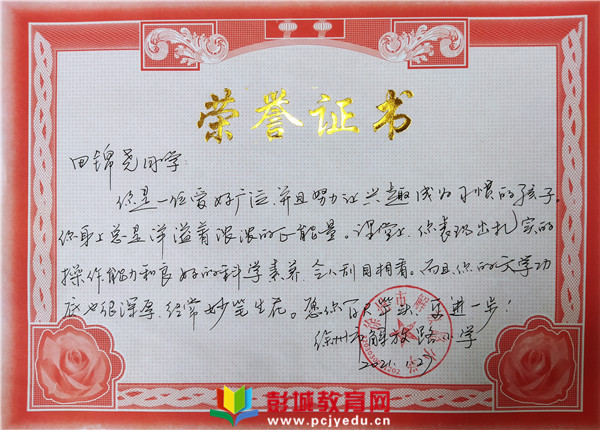 荣誉证书
田锦尧同学:
你是一位爱好广泛,并且努力让兴趣成为习惯的孩子。
你身上总是洋溢着浓浓的正能量。课堂上,你表现出扎实的
操作能力和良好的科学素养,令人刮目相看。而且,你的文学功
底也很深厚,经常妙笔生花。愿你百尺竿头,更进一步!
徐州市解放路小学
2021.1.27
彭城教育网
www.pcjyedu.cn